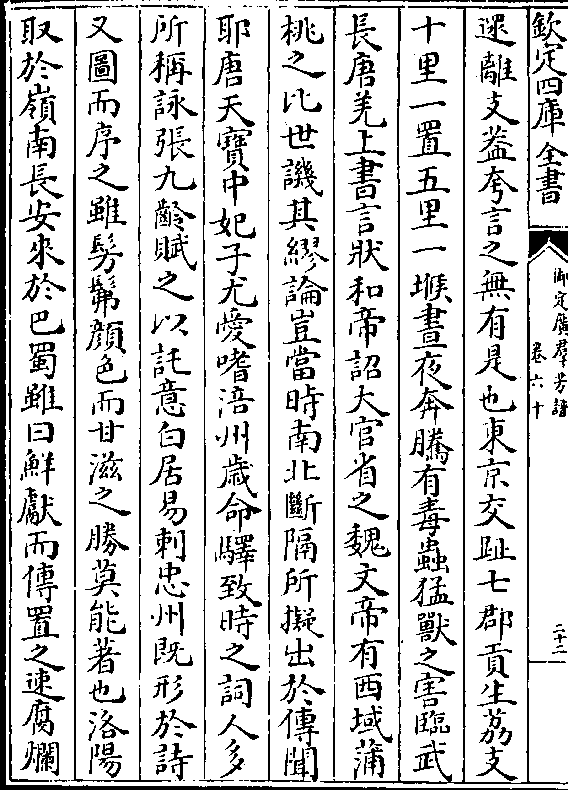 欽定四庫全書
御定廣羣芳譜
卷六十
二十二
還離支葢夸言之無有是也東京交趾七郡貢生荔支
十里一置五里一堠晝夜奔騰有毒蟲猛獸之害臨武
長唐羌上書言狀和帝詔大官省之魏文帝有西域蒲
桃之比世譏其繆論豈當時南北斷隔所擬出於傳聞
耶唐天寶中妃子尤愛嗜涪州歲命驛致時之詞人多
所稱詠張九齡賦之以託意白居易刺忠州既形於詩
又圖而序之雖髣髴顔色而甘滋之勝莫能著也洛陽
取於嶺南長安來於巴蜀雖曰鮮獻而傳置之速腐爛